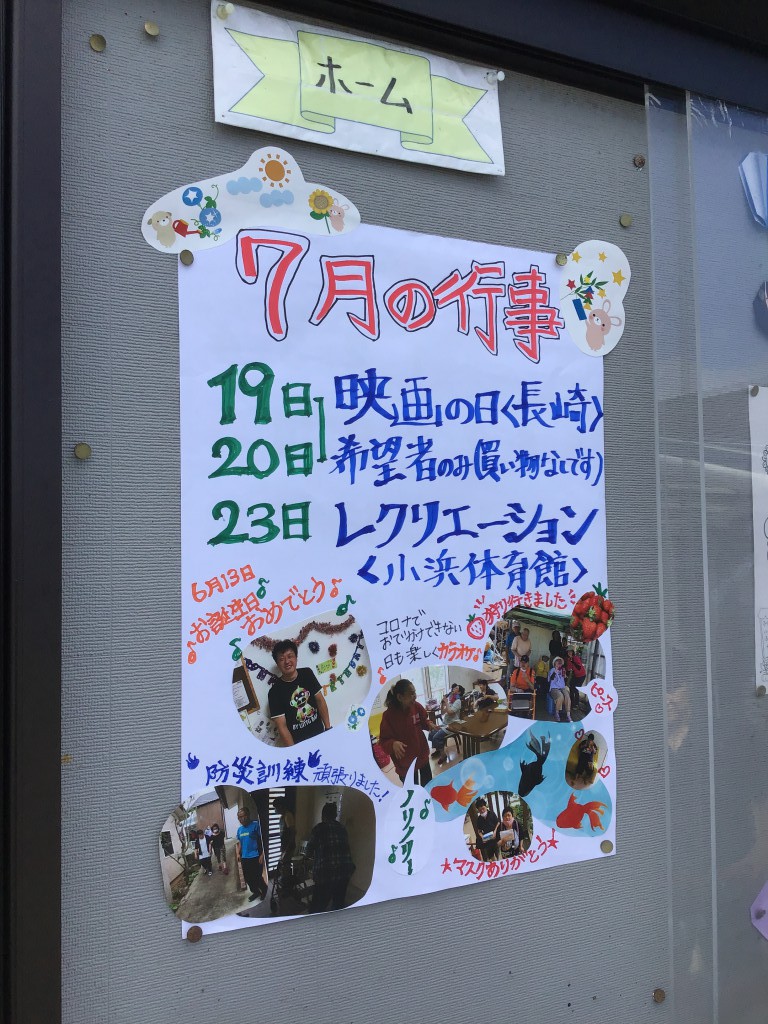 ホーム
7月の行事
19日 映画の日<長崎>
20日 希望者のみ(買い物なしです)
23日 レクリエーション
<小浜体育館>
6月13日
♪お誕生日♪
おめでとう♪
コロナで
おでかけできない
日も楽しくカラオケ♪
狩り行きました
ピース
防災訓練 頑張りました!
ノリノリー
★マスクありがとう★